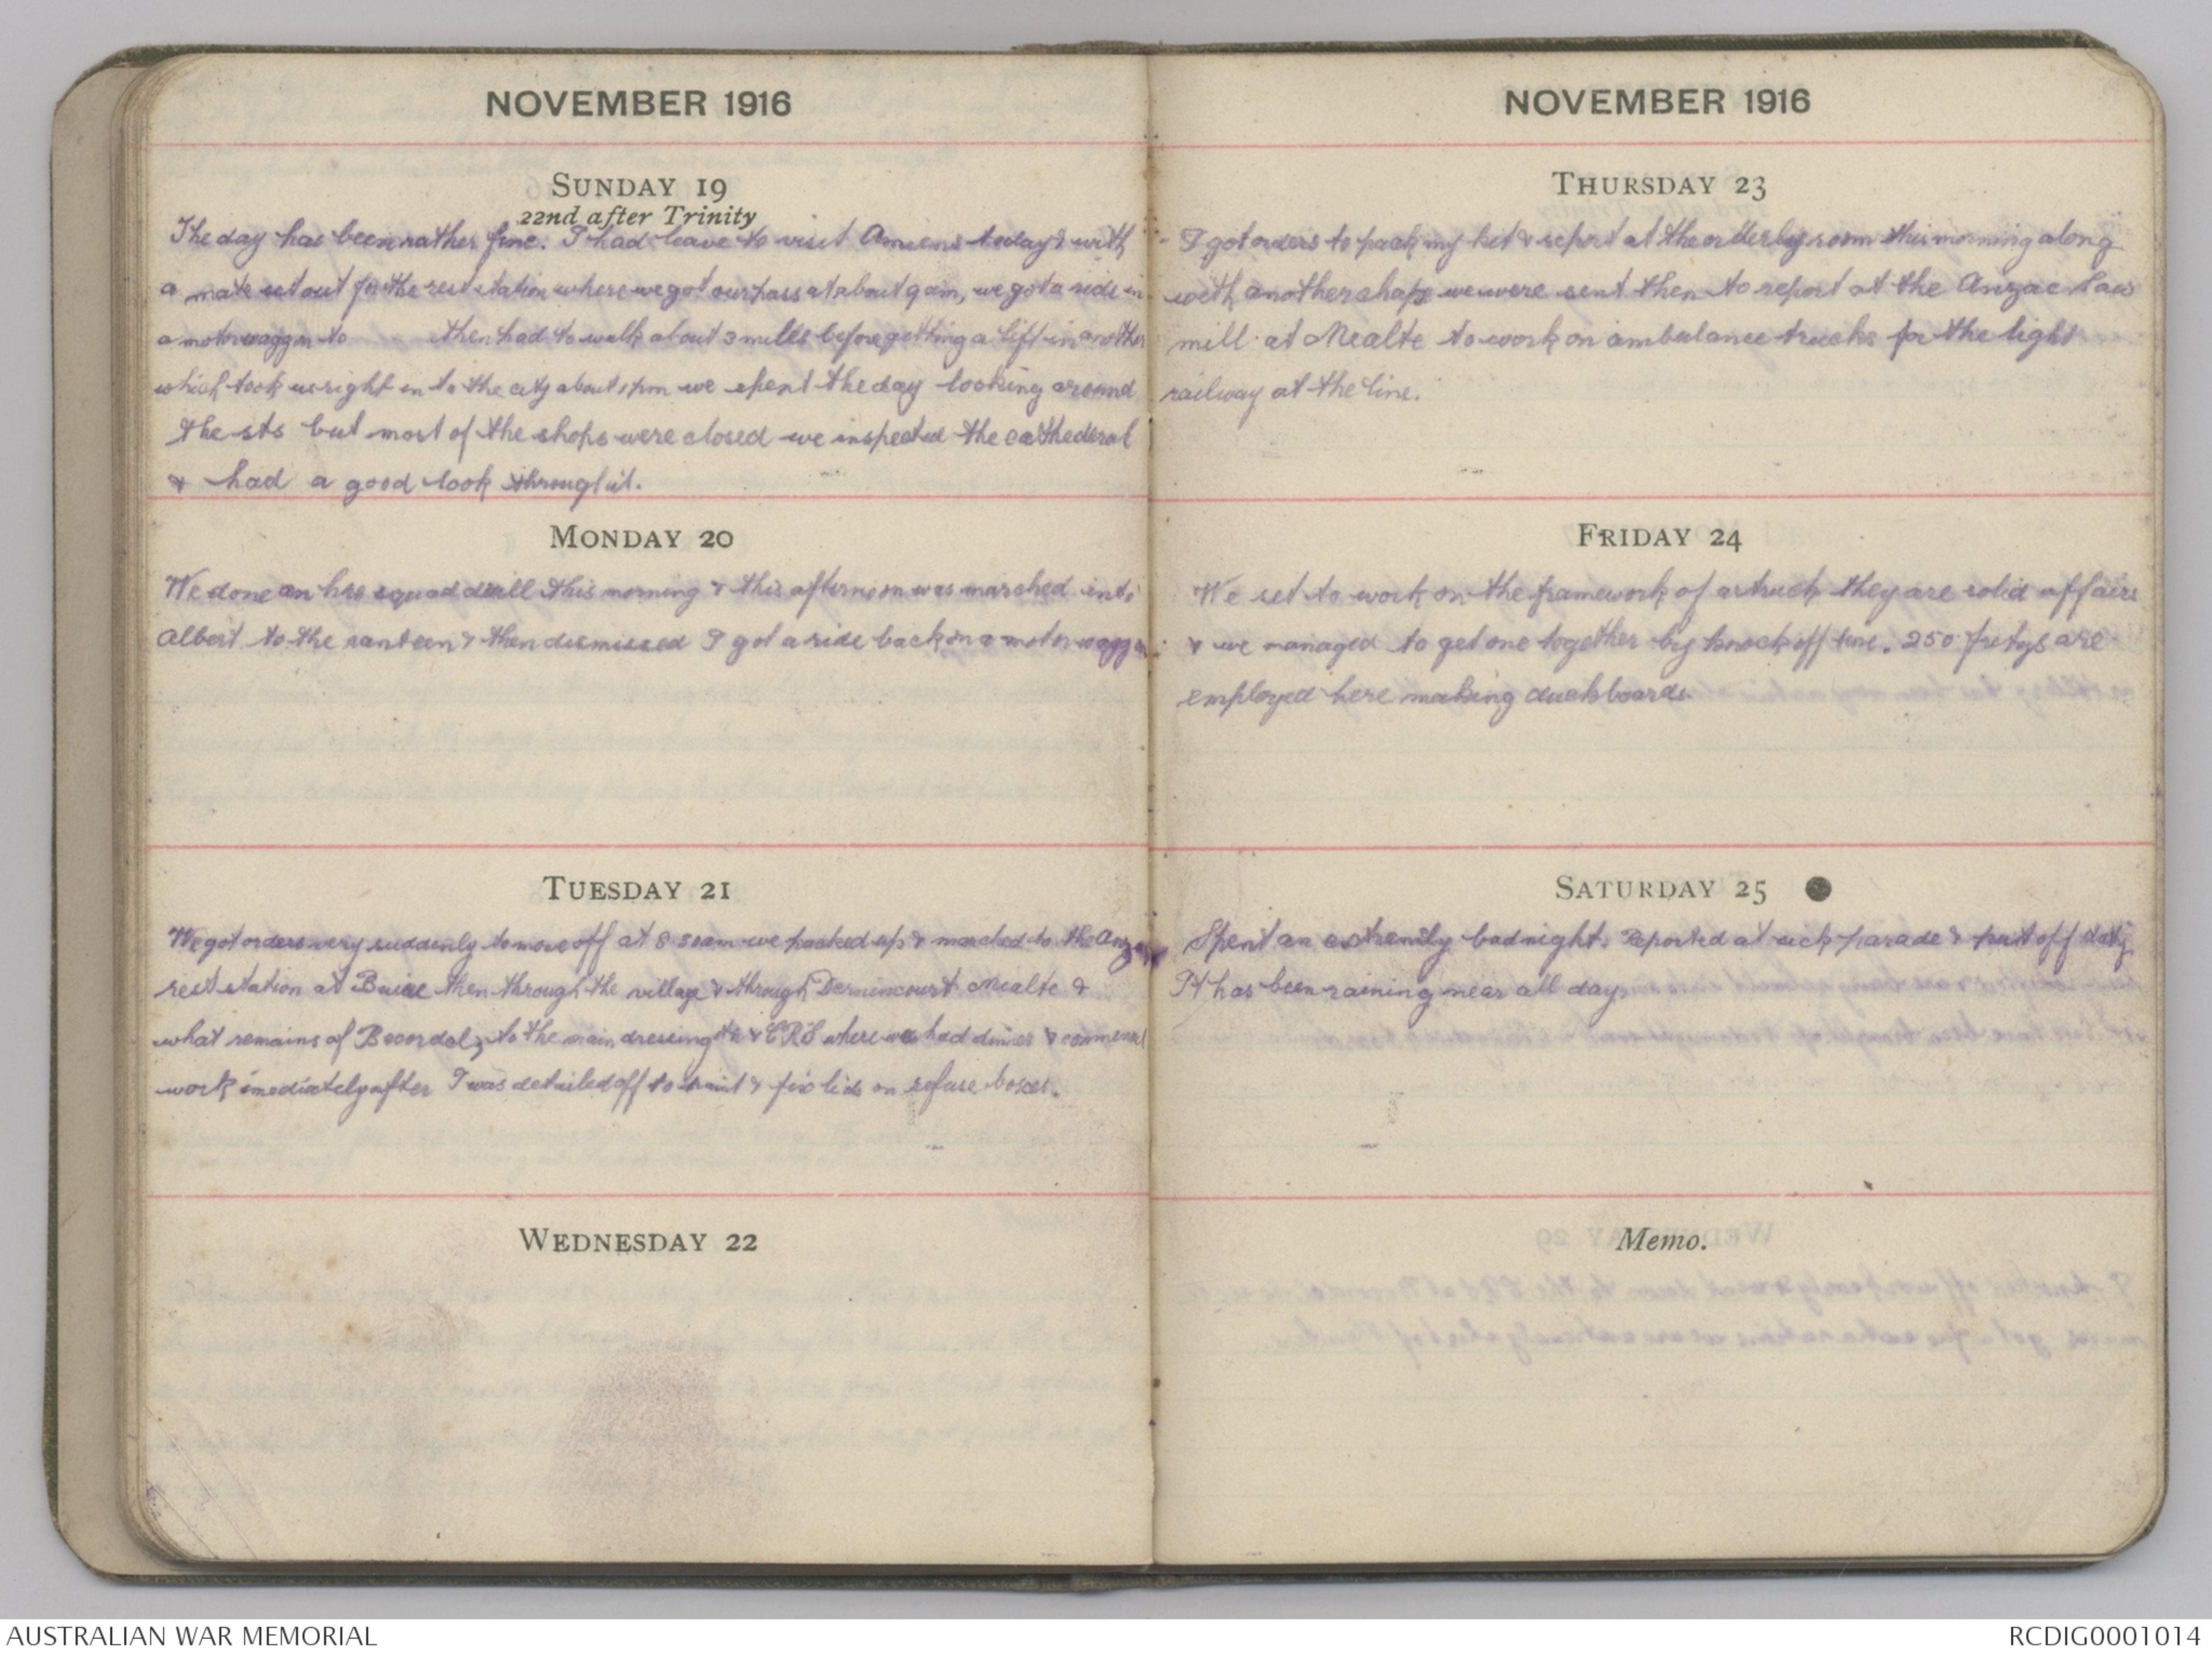 NOVEMBER 1916
SUNDAY 19
22nd after Trinity
The day has been rather fine. I had leave to visit Amiens today & with
a mate set out for the rest station where we got our pass at about 9 am, we got a ride in
a motor waggon to then had to walk about 3 miles before getting a lift in another
which took us right in to the city about 1 pm we spent the day looking around
the sts but most of the shops were closed we inspected the cathederal
& had a good look through it.
MONDAY 20
We done an hrs squad drill this morning & this afternoon was marched into
Albert to the canteen & then dismissed I got a ride back on a motor waggon
TUESDAY 21
We got orders very suddenly to move off at 8.50am we packed up & marched to the Anzac
rest station at Buire then through the village & through Dernincourt Mealte &
what remains of Becordel, to the main dressing stn & CRS where we had dinner &
work imediately after I was detailed off to & fix lids on refuse boxes.
WEDNESDAY 22
NOVEMBER 1916
THURSDAY 23
I got orders to pack my kit & report at the orderly room this morning along
with another chap we were sent then to report at the Anzac Saw
mill at Mealte to work on ambulance trucks for the light
railway at the line.
FRIDAY 24
We set to work on the framework of a truck they are solid affairs
& we managed to get one together by knock off time. 250 are
employed here making duckboards.
SATURDAY 25
Spent an extremily bad night. Reported at sick parade & put off duty
It has been raining near all day.
Memo.
AUSTRALIAN WAR MEMORIAL
RCDIG0001014